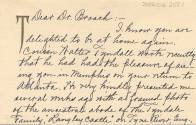 Dear Dr. Broach:-
I know you are
delighted to be at home again.
Cousin Walter Tyndall wrote recently
that he had had the pleasure of see-
ing you in Memphis on your return to
Atlanta. He very kindly presented me
several weeks ago with a framed photo
of the ancestral abode of the Tyndale
Family, "Langley Castle" on Tyne River, Eng.